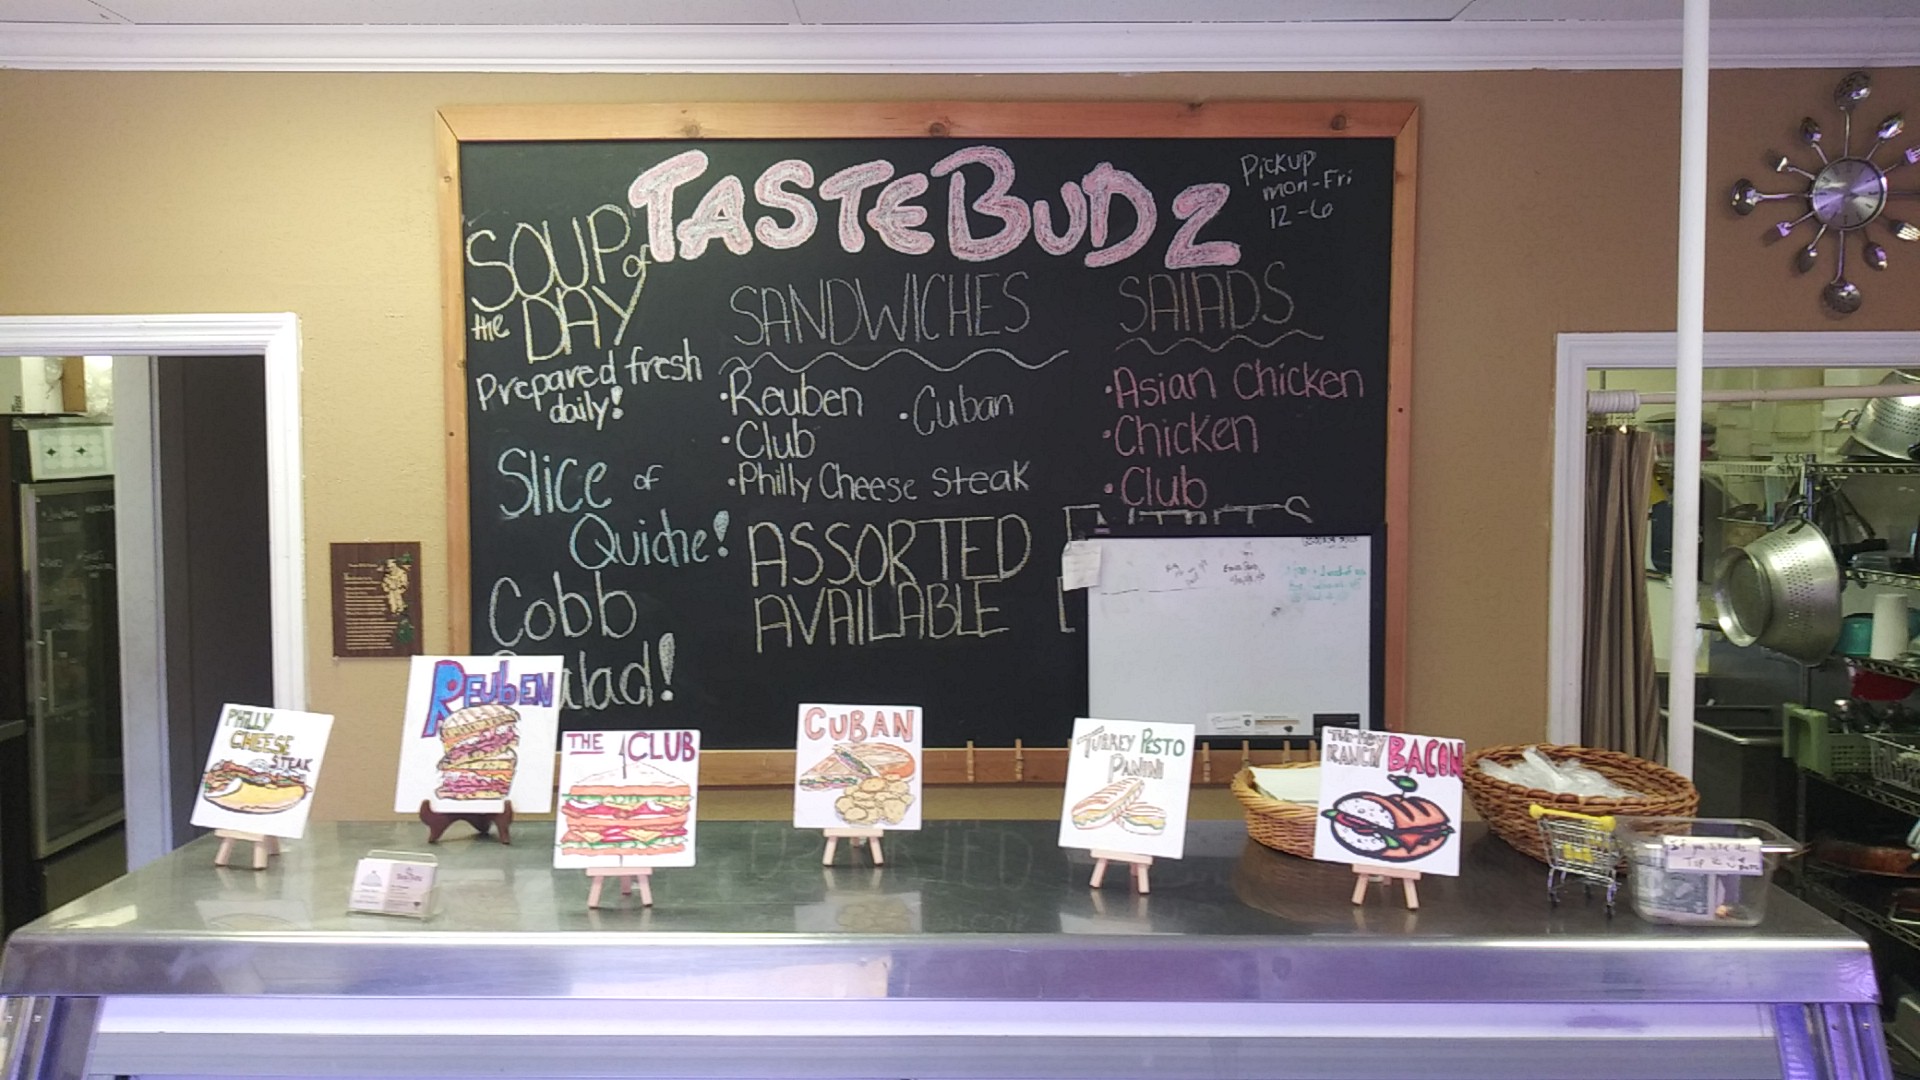 TASTEBUDZ
Pickup
mon-Fri
12-6
SOUP of
the DAY
Prepared fresh
daily!
Slice of
Quiche!
Cobb
alad!
SANDWICHES
·Reuben
·Cuban
·Club
·Philly Cheese Steak
ASSORTED
AVAILABLE
SALADS
·Asian Chicken
·Chicken
·Club
PHILLY
CHEESE
STEAK
REUBEN
THE CLUB
CUBAN
TURKEY PESTO
PANINI
TURKEY
RANCH BACON